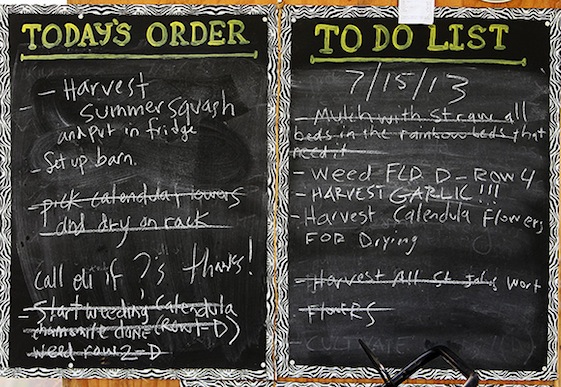 TODAY'S ORDER
- Harvest
summer squash
and put in fridge
- Set up barn.
- pick calendula flowers
and dry on rack
Call eli if ?'s thanks!
- Start weeding Calendula
chamomile done (Row 1-D)
weed row 2-D
TO DO LIST
7/15/13
- Mulch with straw all
beds in the rainbow beds that
need it
- Weed FLD. D - Row 4
- HARVEST GARLIC!!!
- Harvest Calendula Flowers
FOR Drying
- Harvest All St. Johns Wort
FlowERS
- CULTIVATE